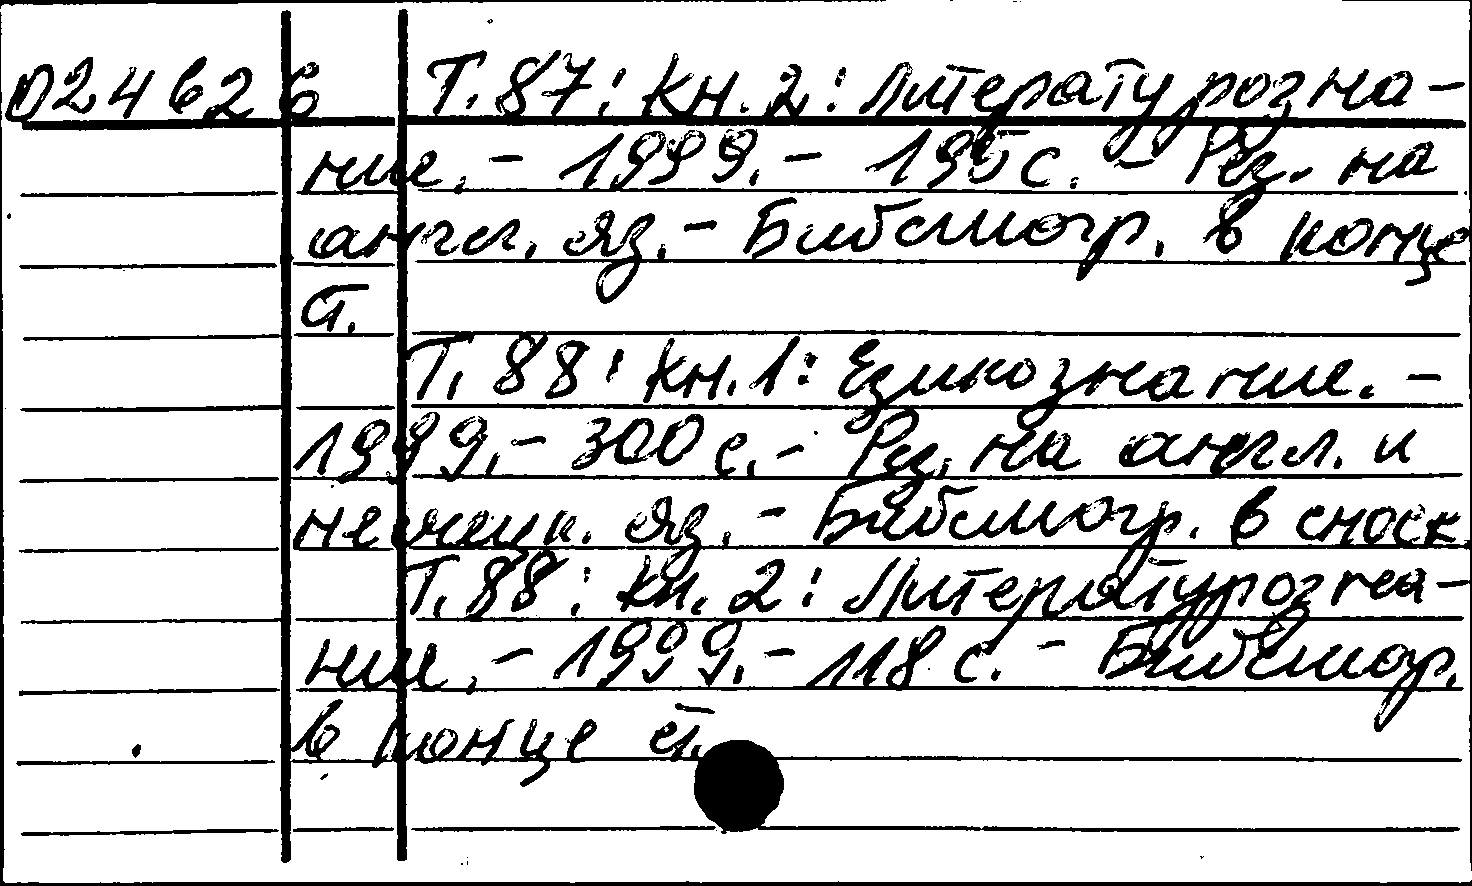 024626 Т. 87: Кн. 2: Литературозна-
ние. - 1999. - 195 с. - Рез. на
англ. яз. - Библиогр. в конце
ст.
Т. 88: Кн. 1: Езикознание. -
1999. - 300 с. - Рез. на англ. и
немецк. яз. - Библиогр. в сноск.
Т. 88: Кн. 2: Литературозна-
ние. - 1999. - 118 с. - Библиогр.
в конце ст.